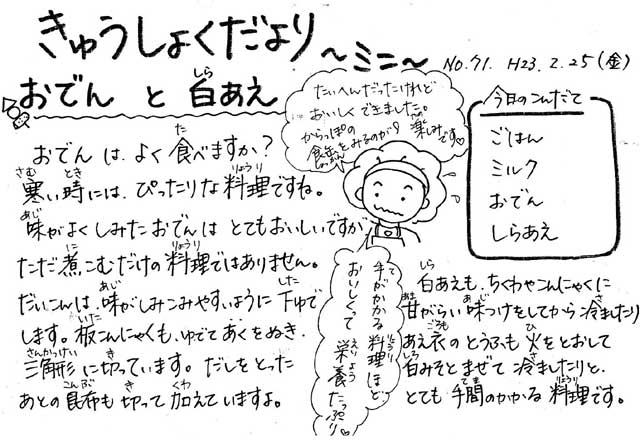 きゅうしょくだより ～ミニ～ No.71. H23.2.25(金)
おでん と 白あえ
おでんは よく 食べますか?
寒い時には、ぴったりな料理ですね。
味がよくしみたおでんは とてもおいしいですが
ただ煮こむだけの料理ではありません。
だいこんは、味がしみこみやすいように下ゆで
します。板こんにゃくも、ゆでてあくをぬき、
三角形に切っています。だしをとった
あとの昆布も切って加えていますよ。
たいへんだったけれど
おいしくできました。
からっぽの
食缶をみるのが
楽しみです♡
手がかかる料理ほど
おいしくって
栄養たっぷり♡
今日のこんだて
ごはん
ミルク
おでん
しらあえ
白あえも、ちくわやこんにゃくに
甘がらい味つけをしてから冷ましたり
あえ衣のとうふも火をとおして
白みそとまぜて冷ましたりと、
とても手間のかかる料理です。